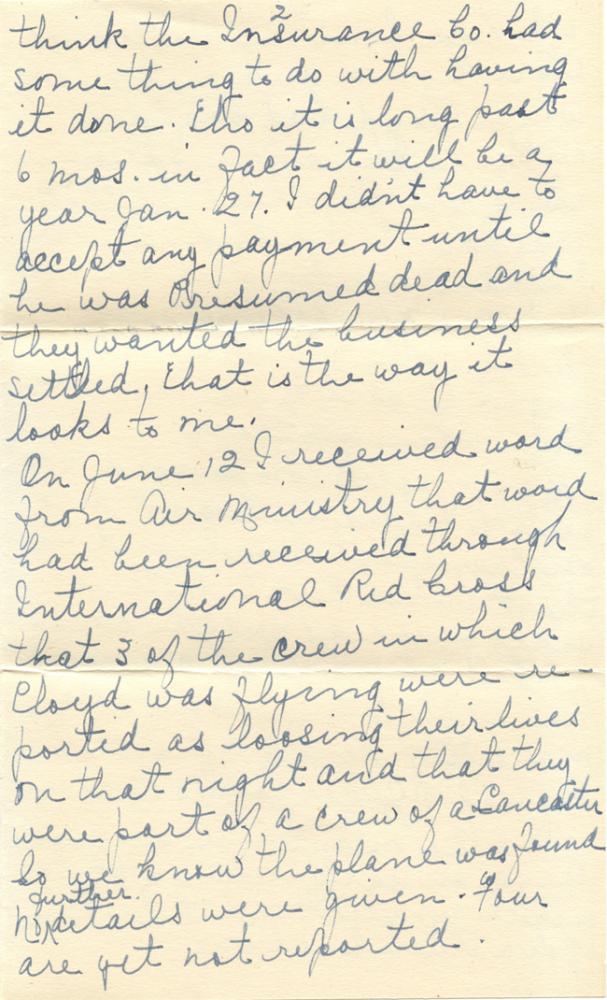 2
think the Insurance Co. had
some thing to do with having
it done. Tho it is long past
6 mos. in fact it will be a
year Jan. 27. I didn't have to
accept any payment until
he was Presumed dead and
they wanted the business
settled, that is the way it
looks to me.
On June 12 I received word
from Air Ministry that word
had been received through
International Red Cross
that 3 of the crew in which
Cloyd was flying were re-
ported as loosing their lives
on that night and that they
were part of a crew of a Lancaster
So we know the plane was found
further
No details were given. Four
are yet not reported.